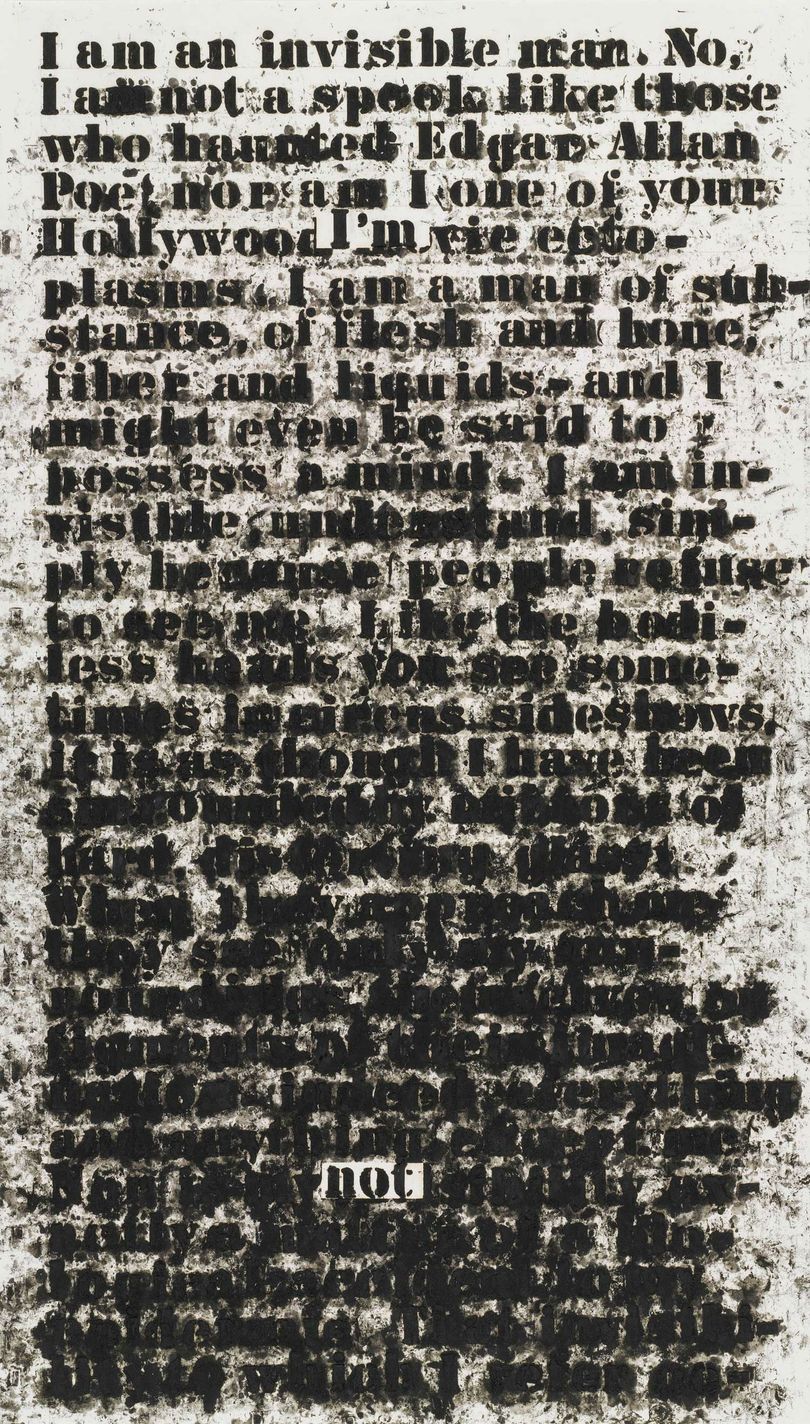 I am an invisible man. No,
I am not a spook like those
who haunted Edgar Allan
Poe; nor am I one of your
Hollywood I'm vie ecto-
plasms. I am a man of sub-
stance, of flesh and bone,
fiber and liquids - and I
might even be said to
possess a mind. I am in-
visible, understand, sim-
ply because people refuse
to see me. Like the bodi-
less heads you see some-
times in circus sideshows,
it is as though I have been
surrounded by mirrors of
hard, distorting glass.
When they approach me
they see only my sur-
roundings, themselves, or
figments of their imagi-
nation - indeed, everything
and anything except me.
Nor is my not ex-
actly a matter of a bio-
to my
That invisibi-
lity to which I refer oc-